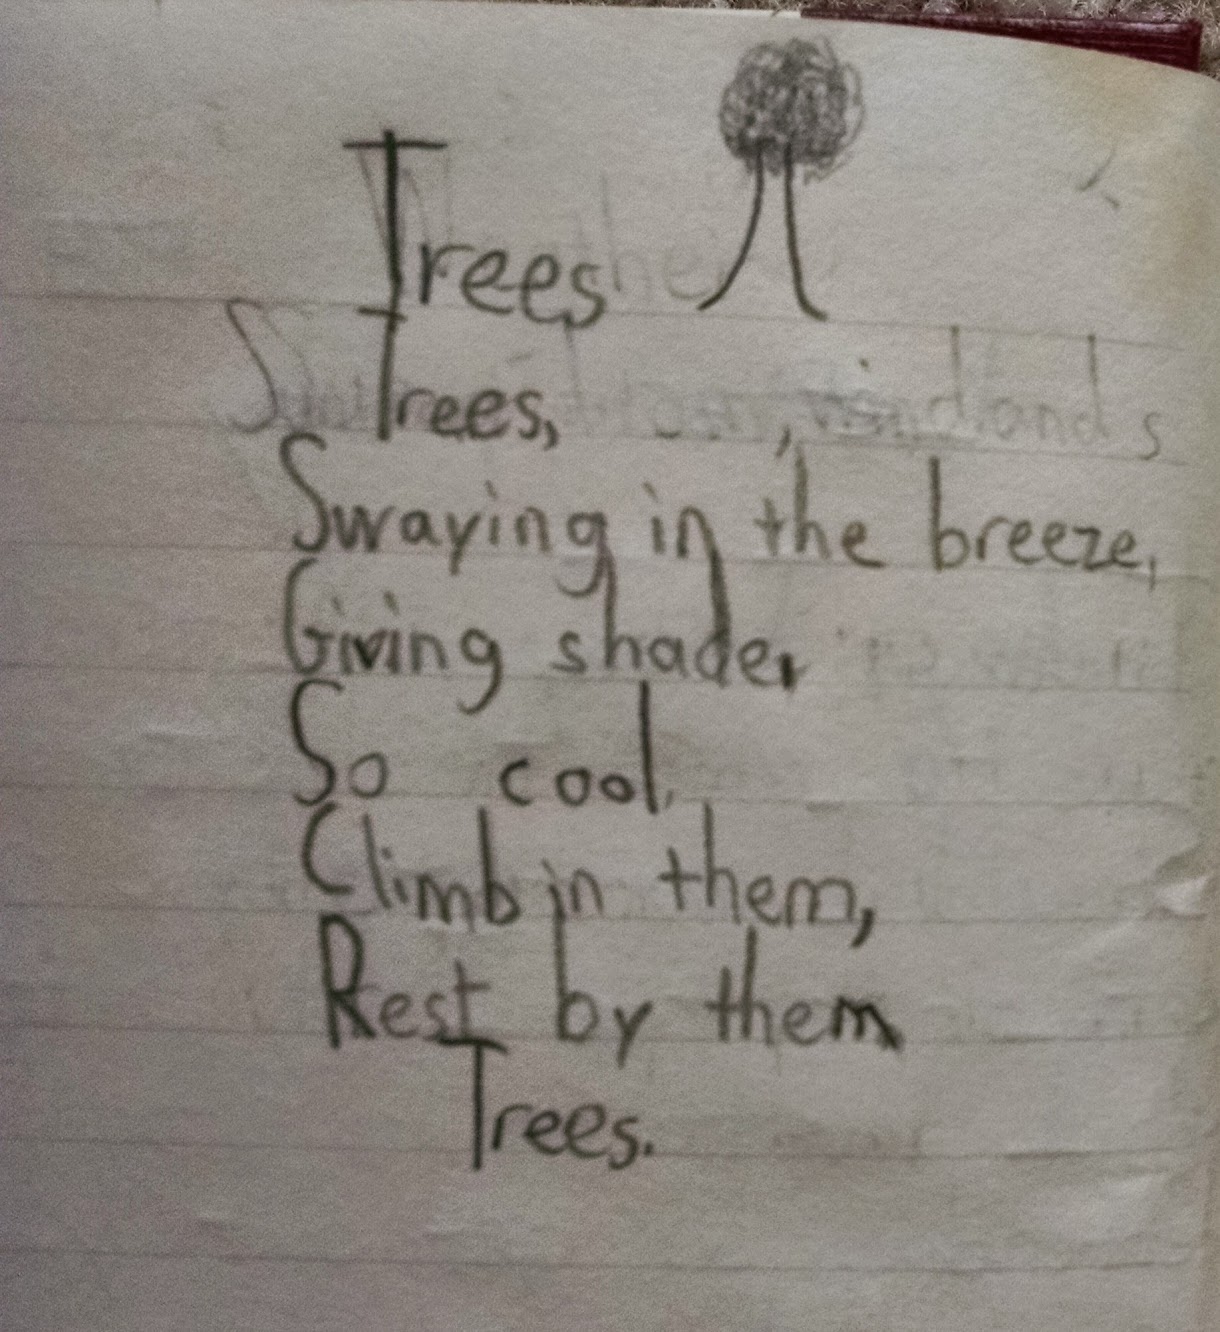 Trees
Trees,
Swaying in the breeze,
Giving shader
So cool,
Climb in them,
Rest by them
Trees.